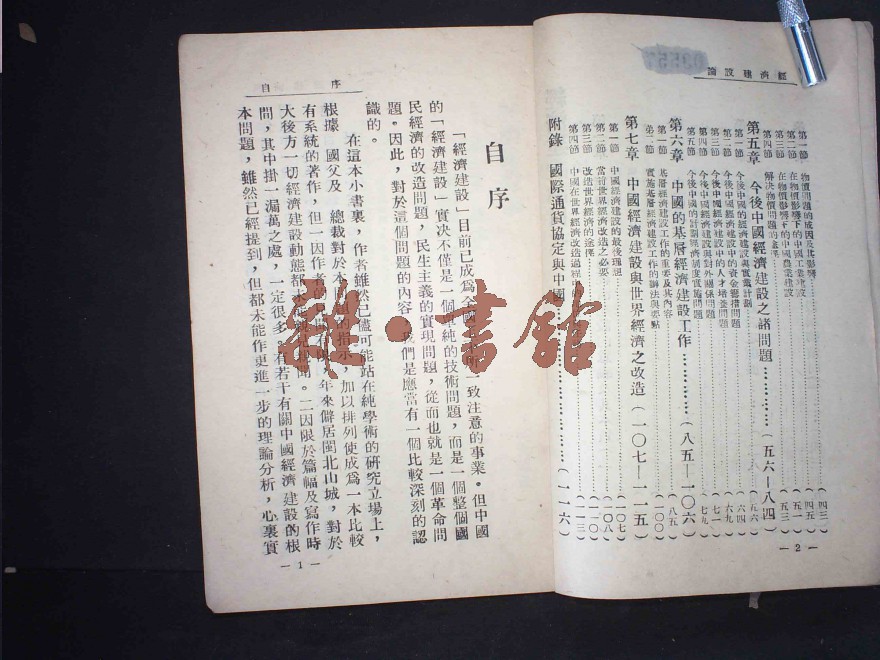 經濟建設論
第一節 物價問題的成因及其影響…(四三)
第二節 在物價影響下的中國工業建設…(四五)
第三節 在物價影響下的中國農業建設…(五一)
第四節 解決物價問題的途徑…(五三)
第五章 今後中國經濟建設之諸問題…(五六—八四)
第一節 今後中國的經濟建設與實業計劃…(五六)
第二節 今後中國經濟建設中的資金籌措問題…(六四)
第三節 今後中國經濟建設中的人才培養問題…(六九)
第四節 今後中國經濟建設與對外關係問題…(七一)
第五節 今後中國的計劃經濟制度實施問題…(七九)
第六章 中國的基層經濟建設工作…(八五—一〇六)
第一節 基層經濟建設工作的重要及其內容…(八五)
第二節 實施基層經濟建設工作的辦法與要點…(一〇〇)
第七章 中國經濟建設與世界經濟之改造(一〇七—一一五)
第一節 中國經濟建設的最後理想…(一〇七)
第二節 當前世界經濟改造之必要…(一〇八)
第三節 改造世界經濟的途徑…(一一〇)
第四節 中國在世界經濟改造過程中的…(一一三)
附錄 國際通貨協定與中國…(一一六)
— 2 —
自序
「經濟建設」目前已成為全國一致注意的事業。但中國
的「經濟建設」實決不僅是一個單純的技術問題,而是一個整個國
民經濟的改造問題,民生主義的實現問題,從而也就是一個革命問
題。因此,對於這個問題的內容,我們是應當有一個比較深刻的認
識的。
在這本小書裏,作者雖然已儘可能站在純學術的研究立場上,
根據 國父及 總裁對於本問題的指示,加以排列使成為一本比較
有系統的著作,但一因作者年來僻居閩北山城,對於
大後方一切經濟建設動態都未能親見親聞。二因限於篇幅及寫作時
間,其中掛一漏萬之處,一定很多。有若干有關中國經濟建設的根
本問題,雖然已經提到,但都未能作更進一步的理論分析,心裏實
— 1 —
自序
雅·書舘